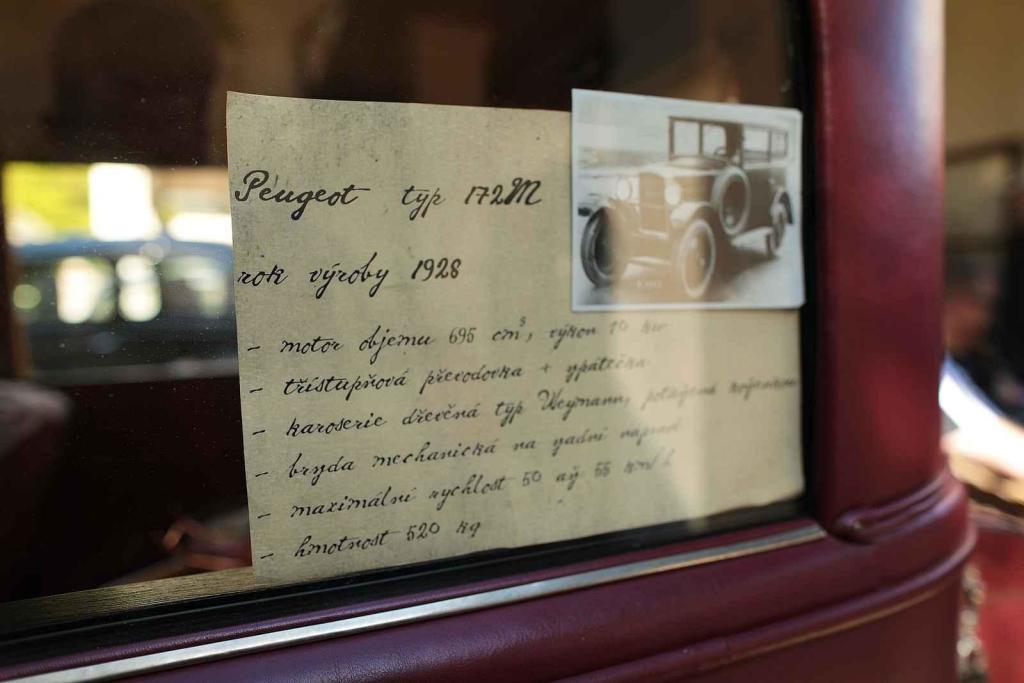 Peugeot typ 172M
rok výroby 1928
- motor objemu 695 cm³, výkon 10 kw
- třístupňová převodovka + zpátečka
- karoserie dřevěná typ Weymann, potažená
- brzda mechanická na zadní nápravě
- maximální rychlost 50 až 55 km/h
- hmotnost 520 kg